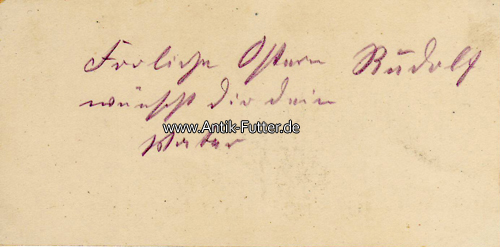 Froliche Ostern Rudolf
wünscht dir dein
www.Antik-Futter.de
Vater